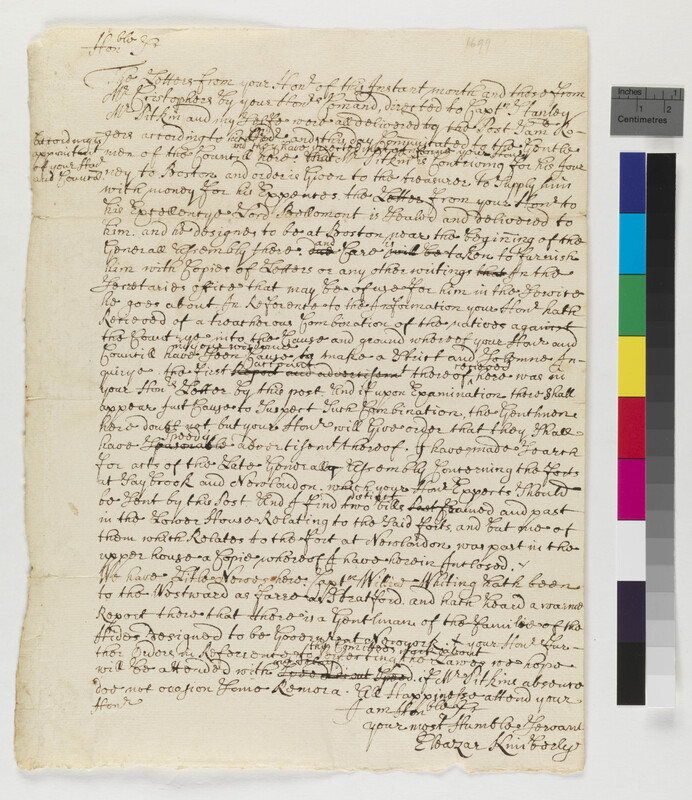 1699
Honble Sr
The Letters from your Honr of this Instant month and those from
Mr Cristophers by your Honrs Comand, directed to Captn Stanley
Mr Pitkin and my selfe were all delivered by the Post Sam Ro-
gers according to and this is Communicated to the Gentle
accordingly
appointed
of your Honr
and Councill
men of the Councill here Mr Pitkin is Contriving for his Jour
ney to Boston, and order is Given to the treasurer to Supply him
with money for his Expences. the Letter from your Honr to
his Excellencye Lord Bellomont is Sealed and delivered to
him. and he designes to be at Boston near the beginning of the
Generall Assembly there. and Care is be taken to furnish
him with Copies of Letters or any other writings In the
Secretaries office that may be of use for him in the Servise
he goes about. In Reference to the Information your Honr hath
Recieved of a treacherous Combination of the natives against
the Country into the Cause and ground whereof your Honr and
Councill have been to make a Strict and Solemne In-
quirye. the first account thereof recieved here was in
your Honrs Letter by this post. And if upon Examination there Shall
appear Just Cause to Suspect Such Combination, the Gentlemen
here doubt not but your Honr will Give order that they Shall
have Speedy advertisment thereof. I have made Search
for acts of the Late Generall Assembly Concerning the forts
at Saybrook and Newlondon. which your Honr Expects Should
be Sent by this Post. And I find two distinct bills framed and past
in the Lower House Relating to the Said forts, and but one of
them which Relates to the fort at Newlondon, was past in the
upper house a Copie whereof I have herein Inclosed.
We have Little News here. Captn Willm Whiting hath been
to the Westward as farre as Stratford, and hath heard a warme
Report there that there is a Gentleman of the Familie of the
Hides designed to be Governr at Newyork. your Honrs fur-
ther Orders in Referrence to the Committees work about
Inspecting the Lawes we hope
will be attended with if Mr Pitkins absence
doe not ocasion Some Remora. All Happinesse attend your
Honr
I am Honble Sr
your most Humble Servant
Eleazar Kimberly
Inches
1
2
Centimetres